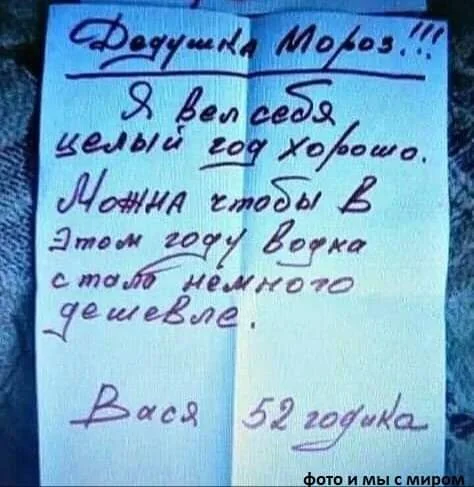 Дедушка Мороз!!!
Я вел себя
целый год хорошо.
Можна чтобы в
этом году водка
стала немного
дешевле.
Вася 52 годика
фото и мы с миром